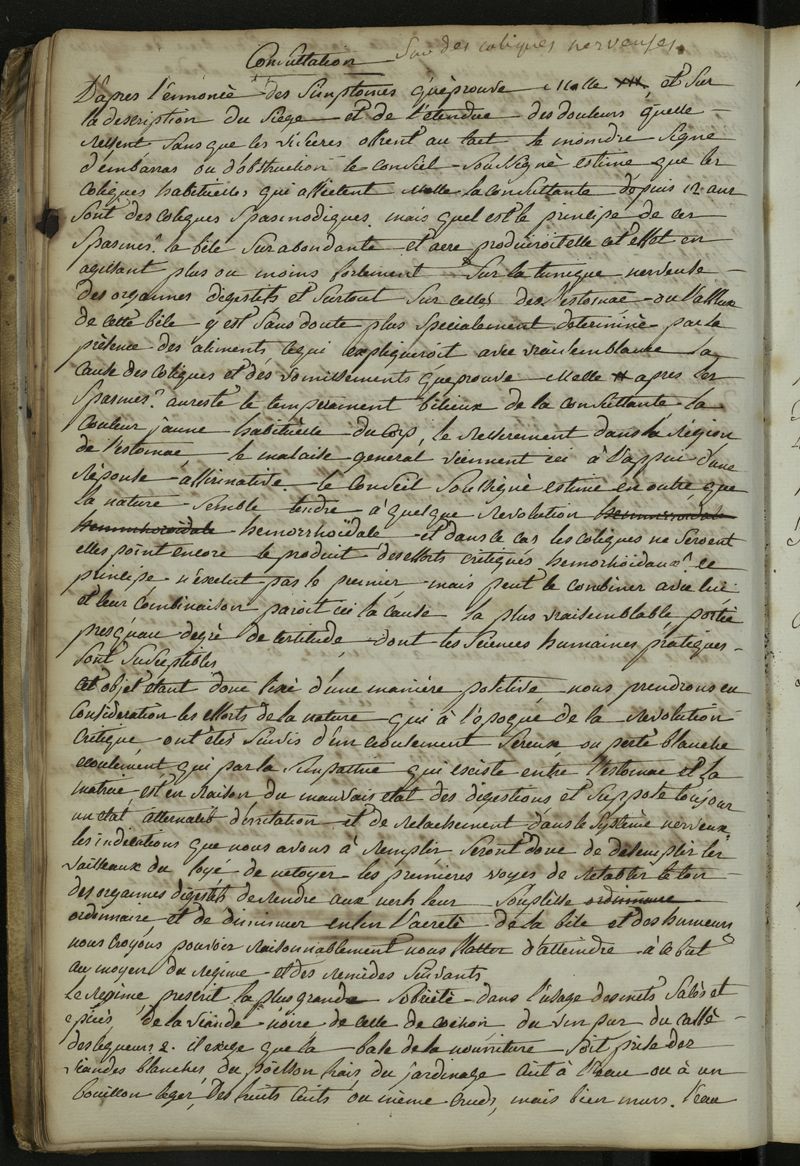 Consultation Sur des coliques nerveuses.
D'apres l'ennoncé des Simptomes qu'eprouve Melle XXX, et Sur
la description du Siege et de l'etendue des douleurs qu'elle
ressent Sans que les visceres offrent au tact le moindre Signe
d'embarras ou d'obstruction le conseil Soussigné estime que les
coliques habituelles qui affectent Melle la consultante depuis 12 ans
Sont des coliques Spasmodiques. mais quel est le principe de ces
Spasmes? la bile Surabondante et acre produiroit elle cet effet en
agissant plus ou moins fortement Sur la tunique nerveuse
des organnes digestifs et Surtout Sur celles de l'estomac ou l'afflux
de cette bile y est Sans doute plus Specialement determiné par la
présence des aliments ce qui expliqueroit avec vraisemblance la
cause des coliques et des vomissements qu'eprouve Melle apres les
Spasmes? au reste le temperament bilieux de la consultante la
couleur jaune habituelle du corp, le resserement dans la région
de l'estomac le malaise general viennent ici à l'appui d'une
réponse affirmative. le conseil Soussigné estime en outre que
la nature Semble tendre à quelque revolution
hemorrhoïdale et dans le cas les coliques ne Seroient
elles point encore le produit des efforts critiques hemorhoïdaux? ce
principe n'exclut pas le premier mais peut le combiner avec lui
et leur combinaison paroit ici la cause la plus vraisemblable portée
presqu'au degré de certitude dont les Sciences humaines pratiques
Sont Susceptibles
cet objet etant donc fixé d'une maniere positive nous prendrons en
consideration les efforts de la nature qui à l'époque de la revolution
critique ont étés Suivis d'un ecoulement Sereux ou perte blanche
ecoulement qui par la Simpathie qui existe entre l'estomac et la
matrice est en raison du mauvais etat des digestions et Suppose toujour
un etat alternatif d'irritation et de relachement dans le Système nerveux.
les indications que nous avons à remplir Seront donc de desemplir les
vaisseaux du foyé de netoyer les premieres voyes de retablir le ton
des organnes digestifs de rendre aux nerfs leur Souplesse
ordinnaire et de diminuer enfin l'acreté de la bile et des humeurs
nous croyons pouvoir raisonnablement nous flatter d'atteindre à ce but
au moyen du regime et des remèdes Suivants
Le regime prescrit la plus grande Sobrieté dans l'usage des mets Salés et
epicés de la viande noire de celle de cochon du vin pur du caffé
des liqueurs &. il exige que la base de la nourriture Soit prise des
viandes blanches du poisson frais du jardinage cuit à l'eau ou à un
bouillon leger, Des fruits cuits ou même cruds, mais bien murs. l'eau